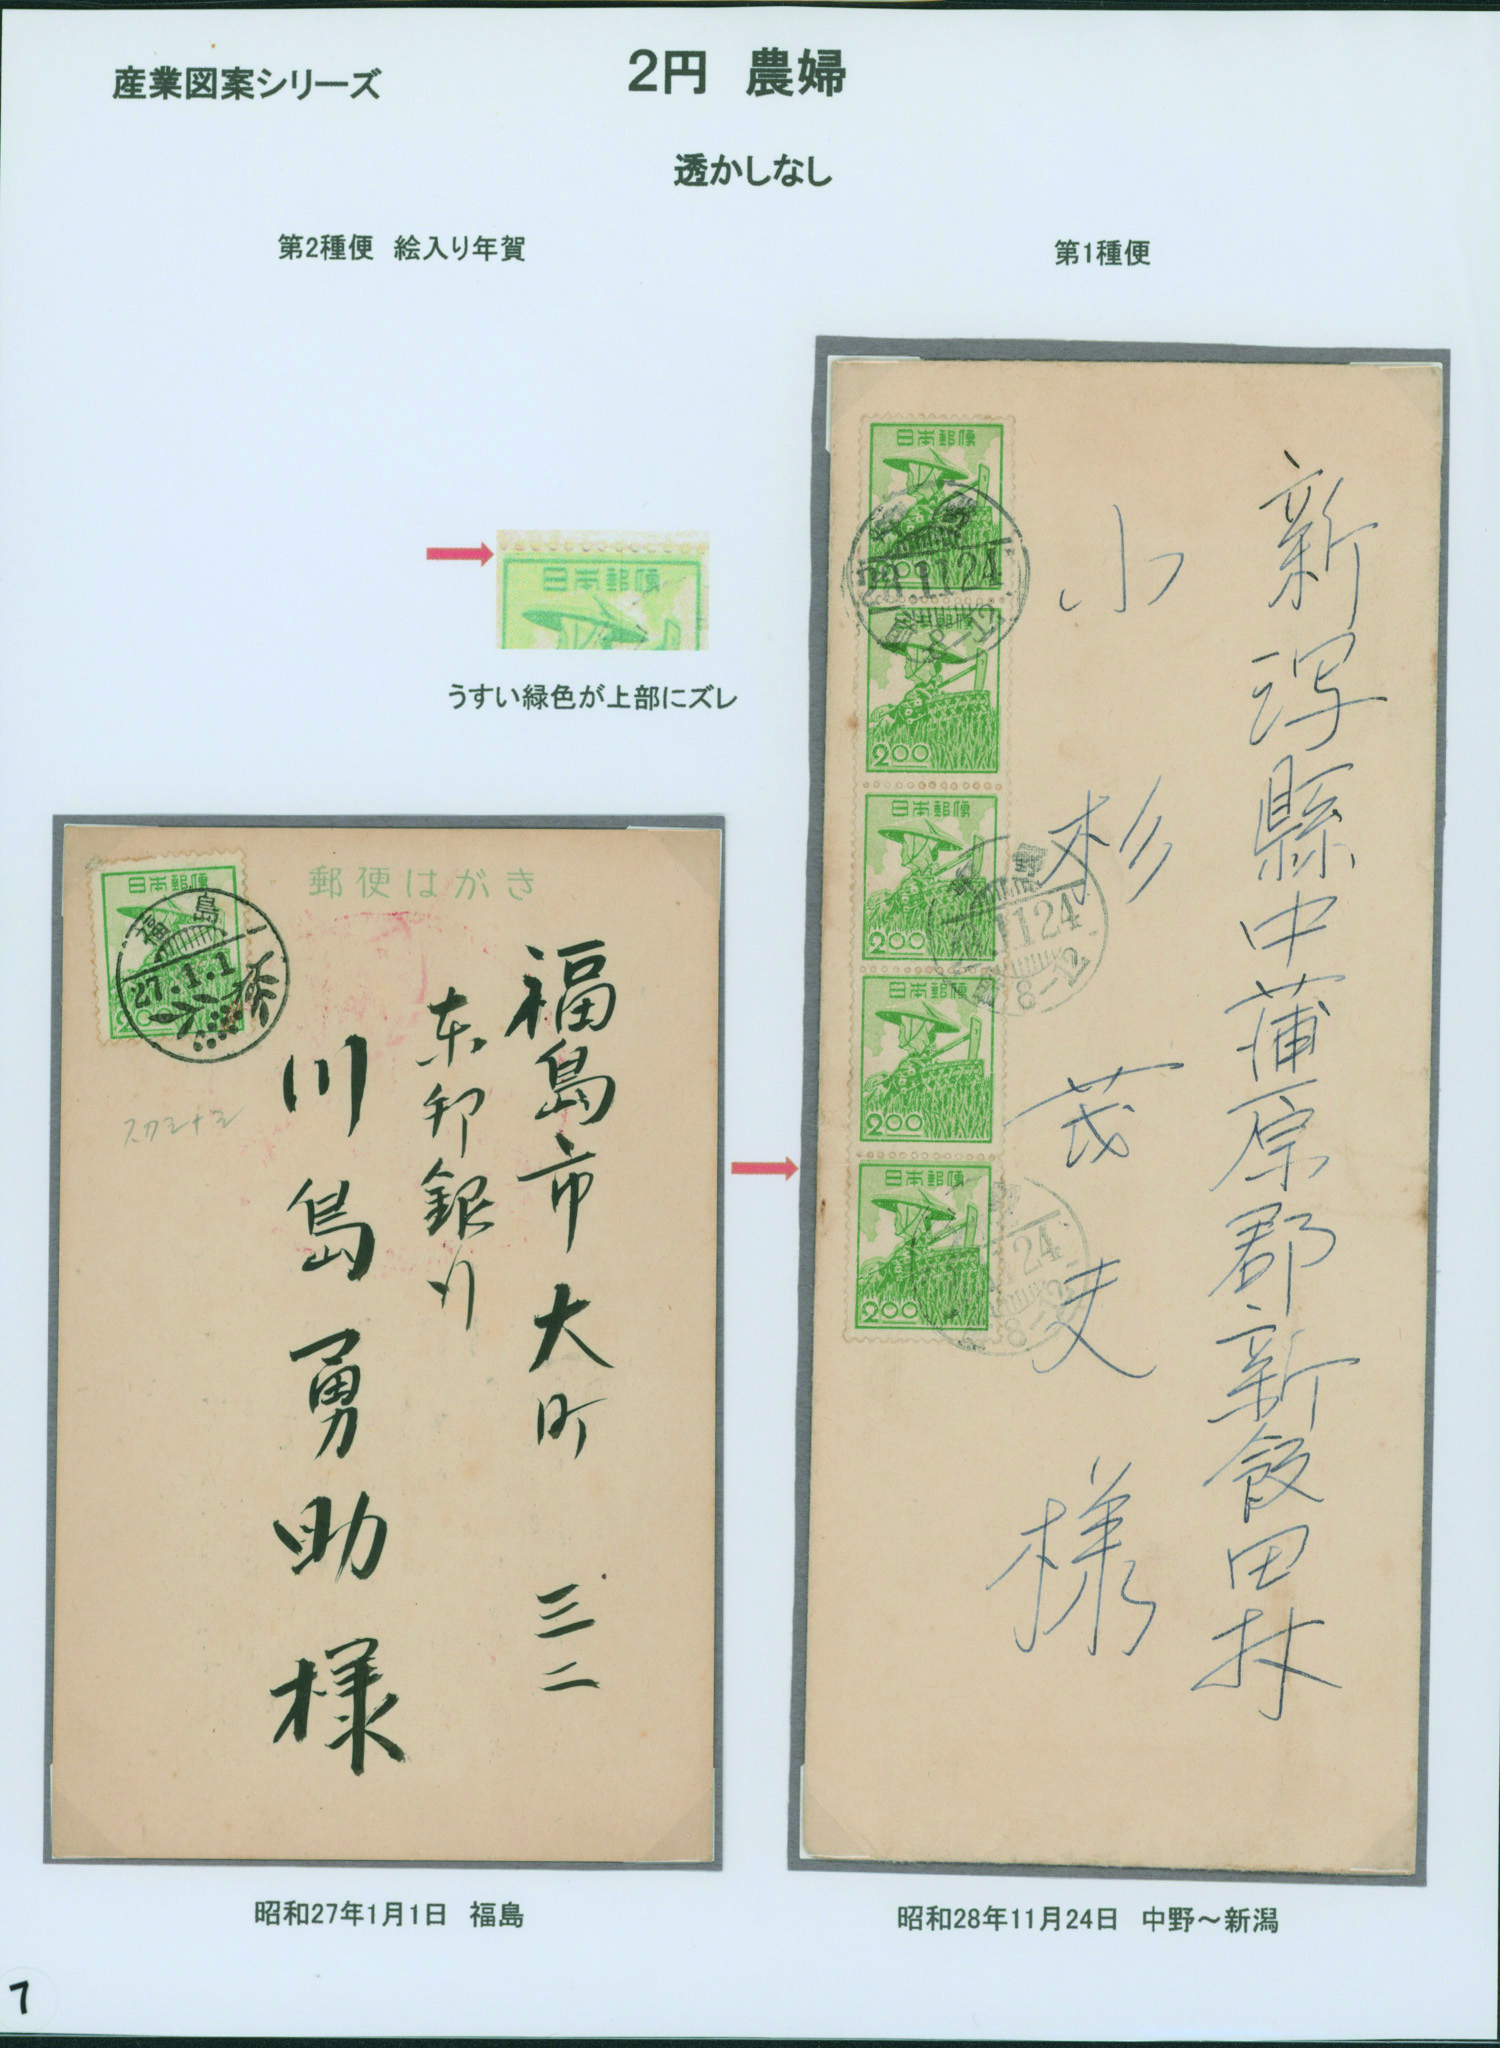 産業図案シリーズ
2円 農婦
透かしなし
第2種便 絵入り年賀
第1種便
日本郵便
うすい緑色が上部にズレ
郵便はがき
日本郵便
2.00
福島
27.1.1
福島市大町 三二
東邦銀行
川島勇助様
スカシナシ
日本郵便
2.00
2.00
日本郵便
2.00
日本郵便
2.00
日本郵便
2.00
28.11.24
8-12
新潟縣中蒲原郡新飯田村
小杉茂夫様
昭和27年1月1日 福島
昭和28年11月24日 中野～新潟
7